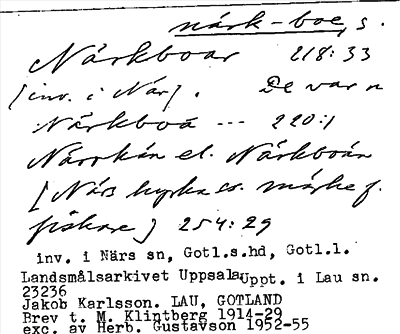 närk-boe, s.
Närkboar 218:33
[inv. i När]. De var n
Närkboa --- 220:1
Närrkán el. Närkboán
[Närs kyrka ss. märke f.
fiskare] 254:29
inv. i Närs sn, Gotl.s.hd, Gotl.l.
Landsmålsarkivet Uppsala Uppt. i Lau sn.
23236
Jakob Karlsson. LAU, GOTLAND
Brev t. M. Klintberg 1914-29
exc. av Herb. Gustavson 1952-55